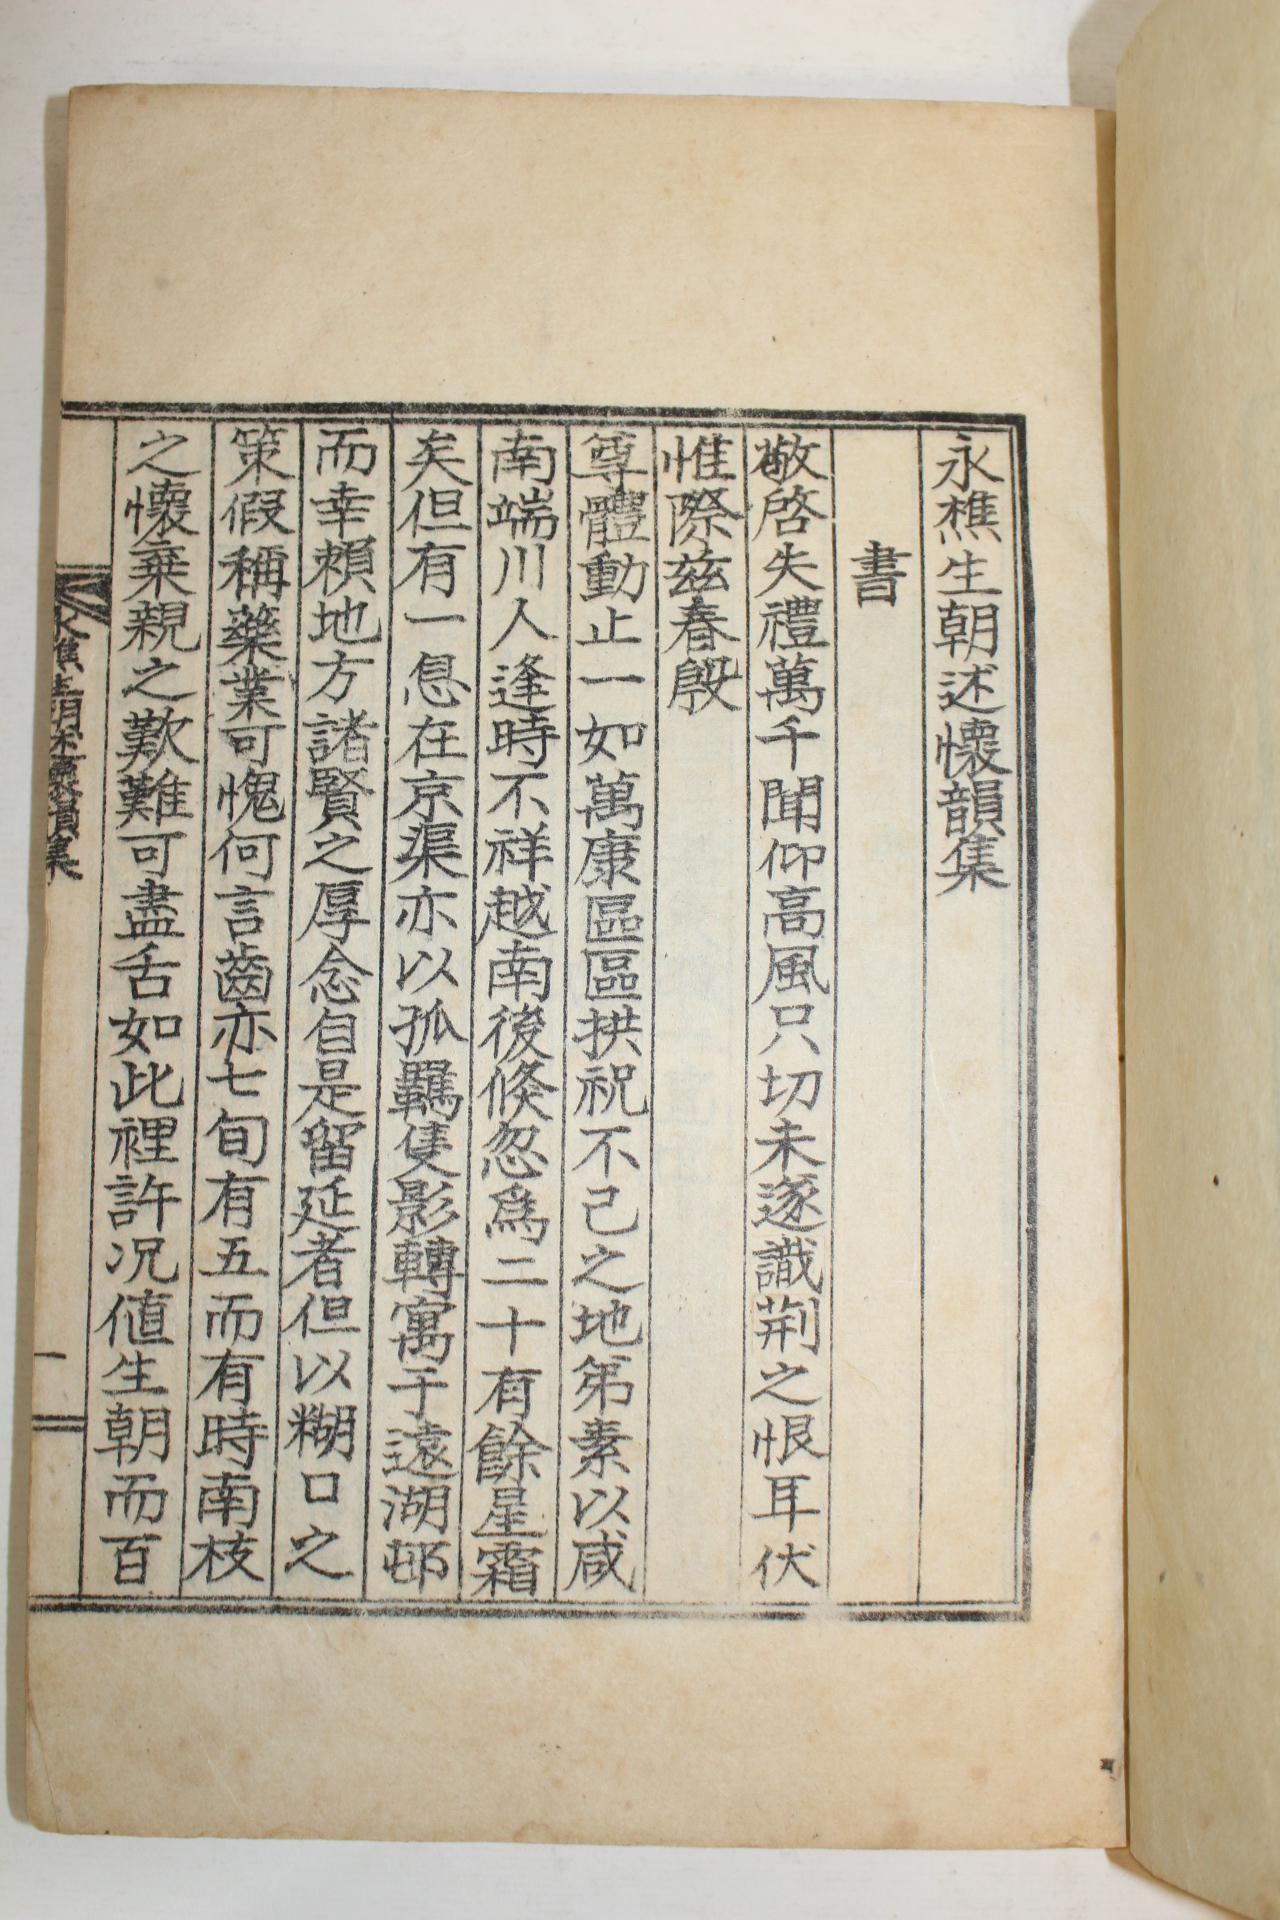 永樵生朝述懷韻集
書
敬啓失禮萬千聞仰高風只切未遂識荊之恨耳伏
惟際玆春殷
尊體動止一如萬康區區拱祝不已之地弟素以咸
南端川人逢時不祥越南後倏忽爲二十有餘星霜
矣但有一息在京渠亦以孤羈隻影轉寓于遠湖邨
而幸賴地方諸賢之厚念自是留延者但以糊口之
策假稱藥業可愧何言齒亦七旬有五而有時南枝
之懷棄親之歎難可盡舌如此裡許況値生朝而百
永樵生朝述懷韻集
一